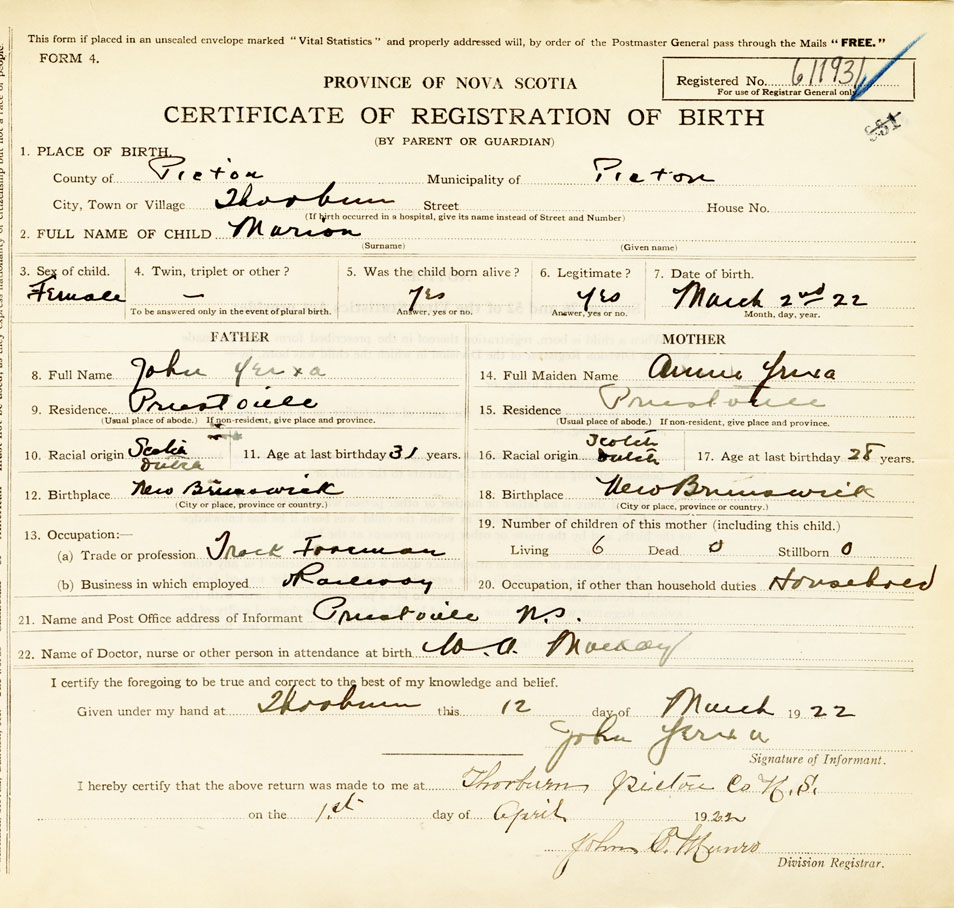 This form if placed in an unsealed envelope marked "Vital Statistics" and properly addressed will, by order of the Postmaster General pass through the Mails "FREE."
FORM 4.
PROVINCE OF NOVA SCOTIA
Registered No. 611931
For use of Registrar General only
CERTIFICATE OF REGISTRATION OF BIRTH
(BY PARENT OR GUARDIAN)
1. PLACE OF BIRTH,
County of Pictou Municipality of Pictou
City, Town or Village Thorburn Street House No.
(If birth occurred in a hospital, give its name instead of Street and Number)
2. FULL NAME OF CHILD Marion
(Surname) (Given name)
3. Sex of child. 4. Twin, triplet or other? 5. Was the child born alive? 6. Legitimate? 7. Date of birth.
Female — Yes Yes March 2nd 22
To be answered only in the event of plural birth. Answer, yes or no. Answer, yes or no. Month, day, year.
FATHER MOTHER
8. Full Name John Yerxa 14. Full Maiden Name Annie Yerxa
9. Residence Priestville 15. Residence Priestville
(Usual place of abode.) If non-resident, give place and province. (Usual place of abode.) If non-resident, give place and province.
10. Racial origin Scotch Dutch 11. Age at last birthday 31 years. 16. Racial origin Scotch Dutch 17. Age at last birthday 28 years.
12. Birthplace New Brunswick 18. Birthplace New Brunswick
(City or place, province or country.) (City or place, province or country.)
13. Occupation:— 19. Number of children of this mother (including this child.)
(a) Trade or profession Track Foreman Living 6 Dead 0 Stillborn 0
(b) Business in which employed Railway 20. Occupation, if other than household duties Household
21. Name and Post Office address of Informant Priestville N.S.
22. Name of Doctor, nurse or other person in attendance at birth W. A. Mackay
I certify the foregoing to be true and correct to the best of my knowledge and belief.
Given under my hand at Thorburn this 12 day of March 1922
John Yerxa
Signature of Informant.
I hereby certify that the above return was made to me at Thorburn Pictou Co N.S.
on the 1st day of April 1922
John C. Munro
Division Registrar.